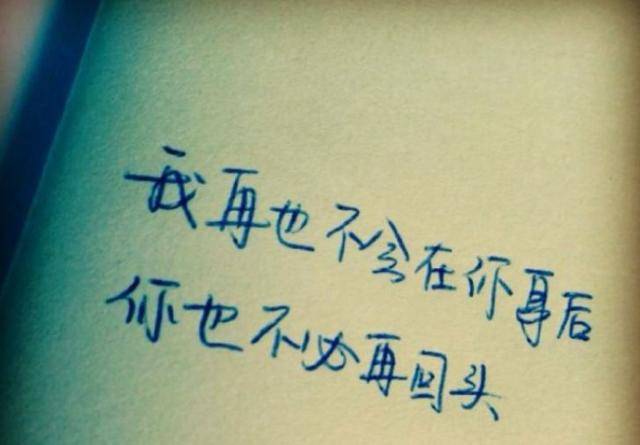 我再也不会在你身后
你也不必再回头